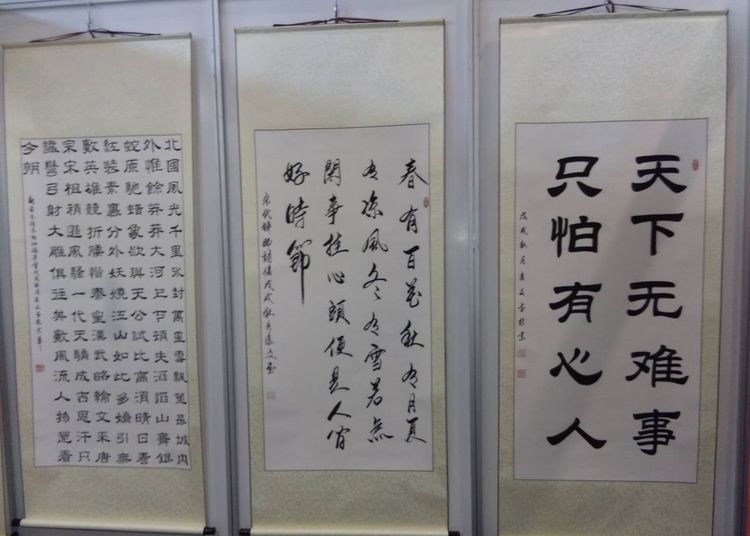 北國風光千里冰封萬里雪飄望長城内
外惟餘莽莽大河上下頓失滔滔山舞銀
蛇原馳蠟象欲與天公試比高須晴日看
紅裝素裹分外妖嬈江山如此多嬌引無
數英雄競折腰惜秦皇漢武略輸文采唐
宗宋祖稍遜風騷一代天驕成吉思汗只
識彎弓射大雕俱往矣數風流人物還看
今朝
春有百花秋有月夏
有凉風冬有雪若無
閑事挂心頭便是人間
好時節
天下无难事
只怕有心人
戊戌秋月